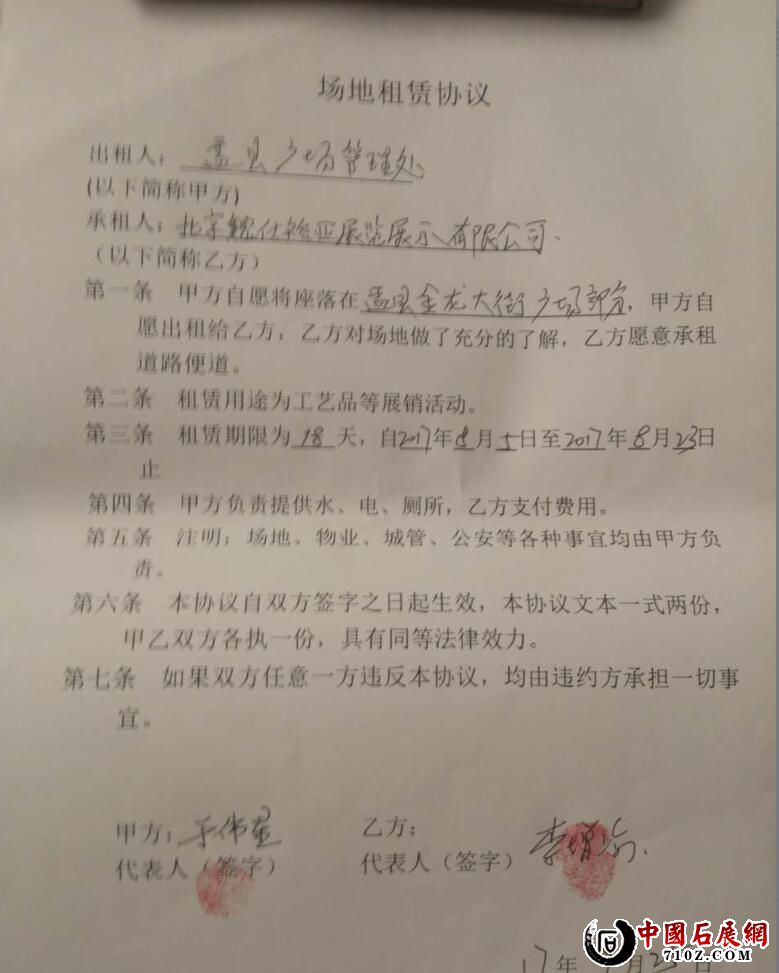 场地租赁协议
出租人：盂县广场管理处
(以下简称甲方)
承租人：北京魏仕翰亚展览展示有限公司.
（以下简称乙方）
第一条 甲方自愿将座落在盂县金龙大街广场部分，甲方自
愿出租给乙方，乙方对场地做了充分的了解，乙方愿意承租
道路便道。
第二条 租赁用途为工艺品等展销活动。
第三条 租赁期限为18天，自2017年8月5日至2017年8月23日
止
第四条 甲方负责提供水、电、厕所，乙方支付费用。
第五条 注明：场地、物业、城管、公安等各种事宜均由甲方负
责。
第六条 本协议自双方签字之日起生效，本协议文本一式两份，
甲乙双方各执一份，具有同等法律效力。
第七条 如果双方任意一方违反本协议，均由违约方承担一切事
宜。
甲方：于伟星 乙方：
代表人（签字） 代表人（签字）李增瑜.
17年 月2
中國石展網
71OZ.COM